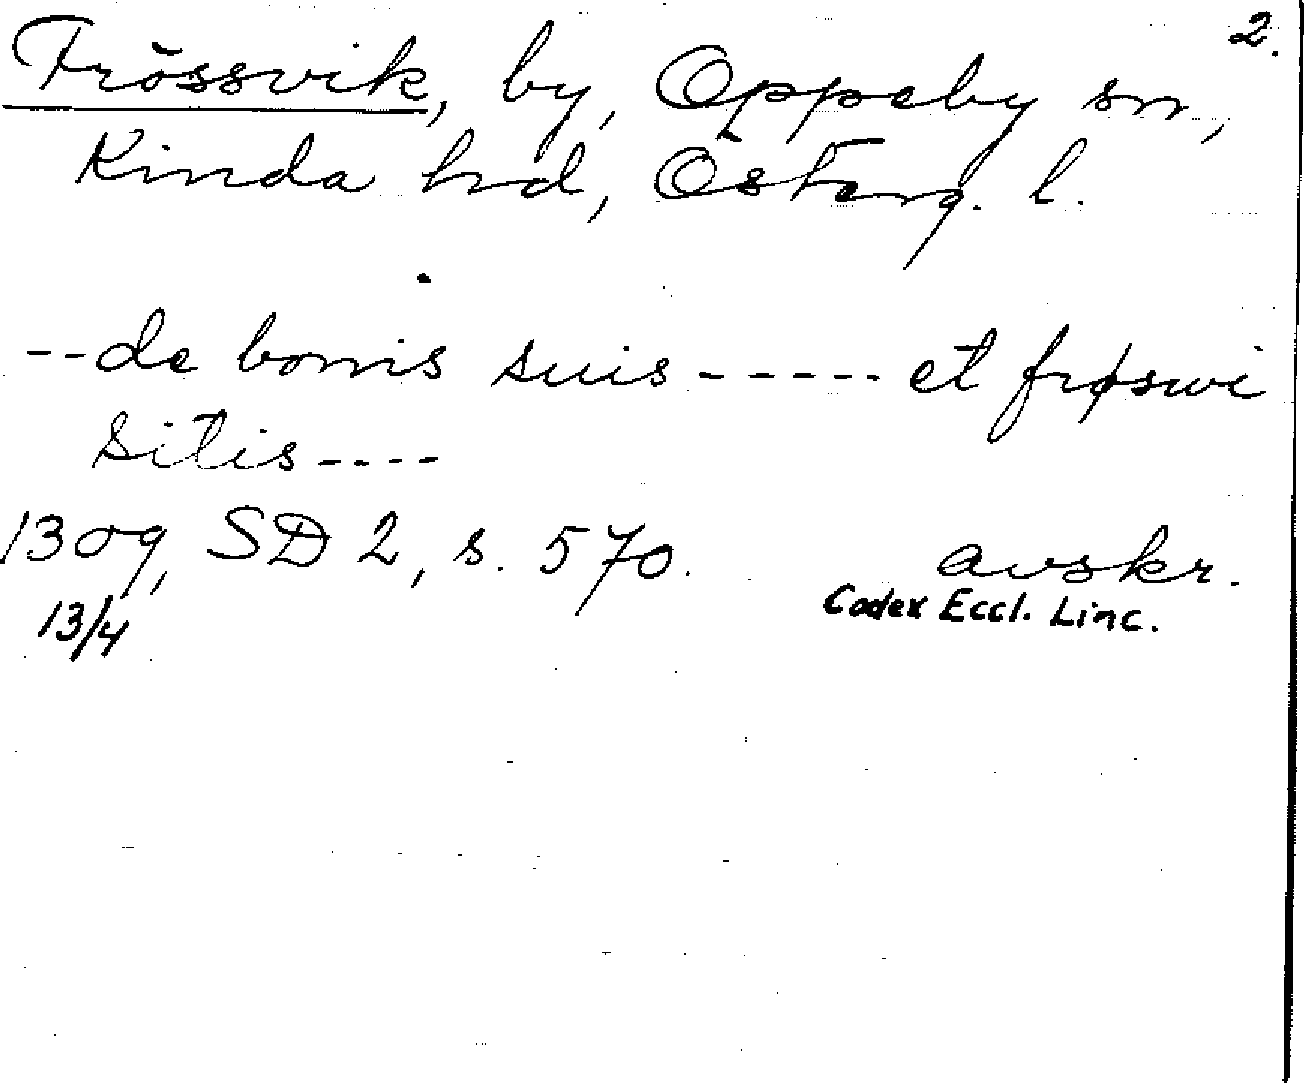 2.
Frössvik, by, Oppeby sn,
Kinda hd, Österg. l.
--de bonis suis----- et frøswi
sitis----
1309, SD 2, s. 570. avskr.
13/4 Codex Eccl. Linc.